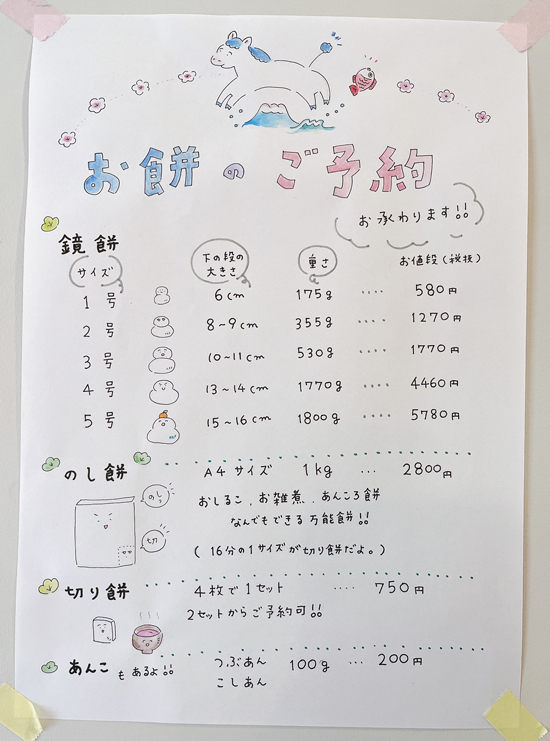 お餅のご予約
お承わります!!
鏡餅
サイズ 下の段の大きさ 重さ お値段(税抜)
1号 6cm 175g ···· 580円
2号 8~9cm 355g ···· 1270円
3号 10~11cm 530g ···· 1770円
4号 13~14cm 1770g ···· 4460円
5号 15~16cm 1800g ···· 5780円
のし餅 A4サイズ 1kg ··· 2800円
のしっ
切
おしるこ、お雑煮、あんころ餅
なんでもできる万能餅!!
(16分の1サイズが切り餅だよ。)
切り餅 4枚で1セット ···· 750円
2セットからご予約可!!
あんこもあるよ!! つぶあん 100g ··· 200円
こしあん